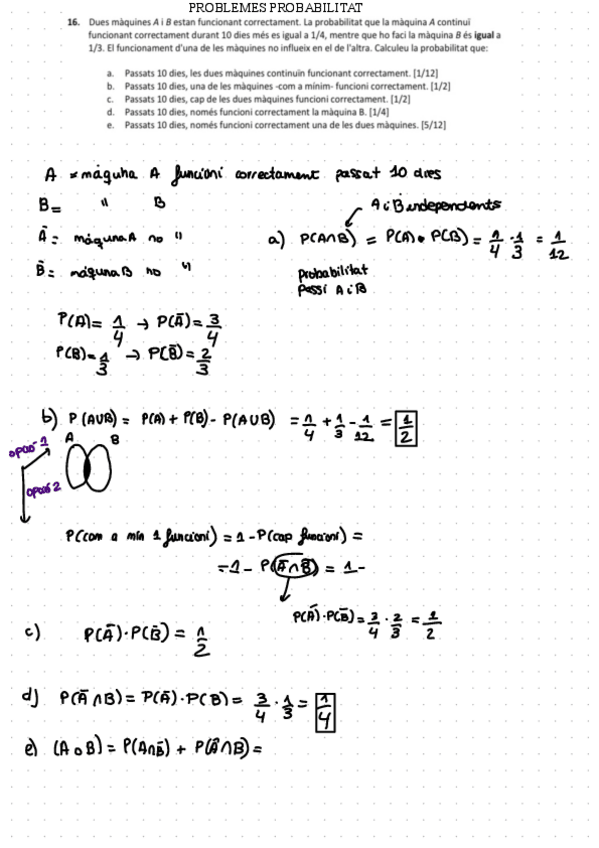 PROBLEMES PROBABILITAT
16. Dues màquines A i B estan funcionant correctament. La probabilitat que la màquina A continuï
funcionant correctament durant 10 dies més es igual a 1/4, mentre que ho faci la màquina B és igual a
1/3. El funcionament d'una de les màquines no influeix en el de l'altra. Calculeu la probabilitat que:
a. Passats 10 dies, les dues màquines continuïn funcionant correctament. [1/12]
b. Passats 10 dies, una de les màquines -com a mínim- funcioni correctament. [1/2]
c. Passats 10 dies, cap de les dues màquines funcioni correctament. [1/2]
d. Passats 10 dies, només funcioni correctament la màquina B. [1/4]
e. Passats 10 dies, només funcioni correctament una de les dues màquines. [5/12]
A = máquina A funcioni correctament passat 10 dies
B = " B
Ā = máquina A no "
B̄ = máquina B no "
A i B independents
a) P(A∩B) = P(A) • P(B) = 1/4 · 1/3 = 1/12
probabilitat
passi A i B
P(A) = 1/4 → P(Ā) = 3/4
P(B) = 1/3 → P(B̄) = 2/3
b) P(A∪B) = P(A) + P(B) - P(A∪B) = 1/4 + 1/3 - 1/12 = 1/2
opció 1
A B
opció 2
P(com a mín 1 funcioni) = 1 - P(cap funcioni) =
= 1 - P(Ā∩B̄) = 1 -
P(Ā)·P(B̄) = 3/4 · 2/3 = 1/2
c) P(Ā)·P(B̄) = 1/2
d) P(Ā∩B) = P(Ā)·P(B) = 3/4 · 1/3 = 1/4
e) (A o B) = P(A∩B̄) + P(Ā∩B) =